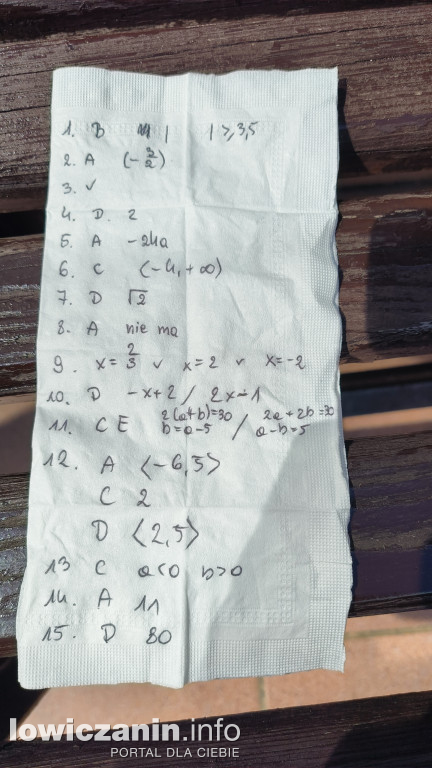 1. B | | ≥ 3,5
2. A (-3/2)
3. ✓
4. D. 2
5. A -24a
6. C ⟨-4, +∞)
7. D √2
8. A nie ma
9. x = 2/3 ∨ x = 2 ∨ x = -2
10. D -x+2 / 2x-1
11. C E 2(a+b)=30 b=a-5 / 2a+2b=30 a-b=5
12. A ⟨-6,5⟩
C 2
D ⟨2,5⟩
13 C a<0 b>0
14. A 11
15. D 80
lowiczanin.info
PORTAL DLA CIEBIE